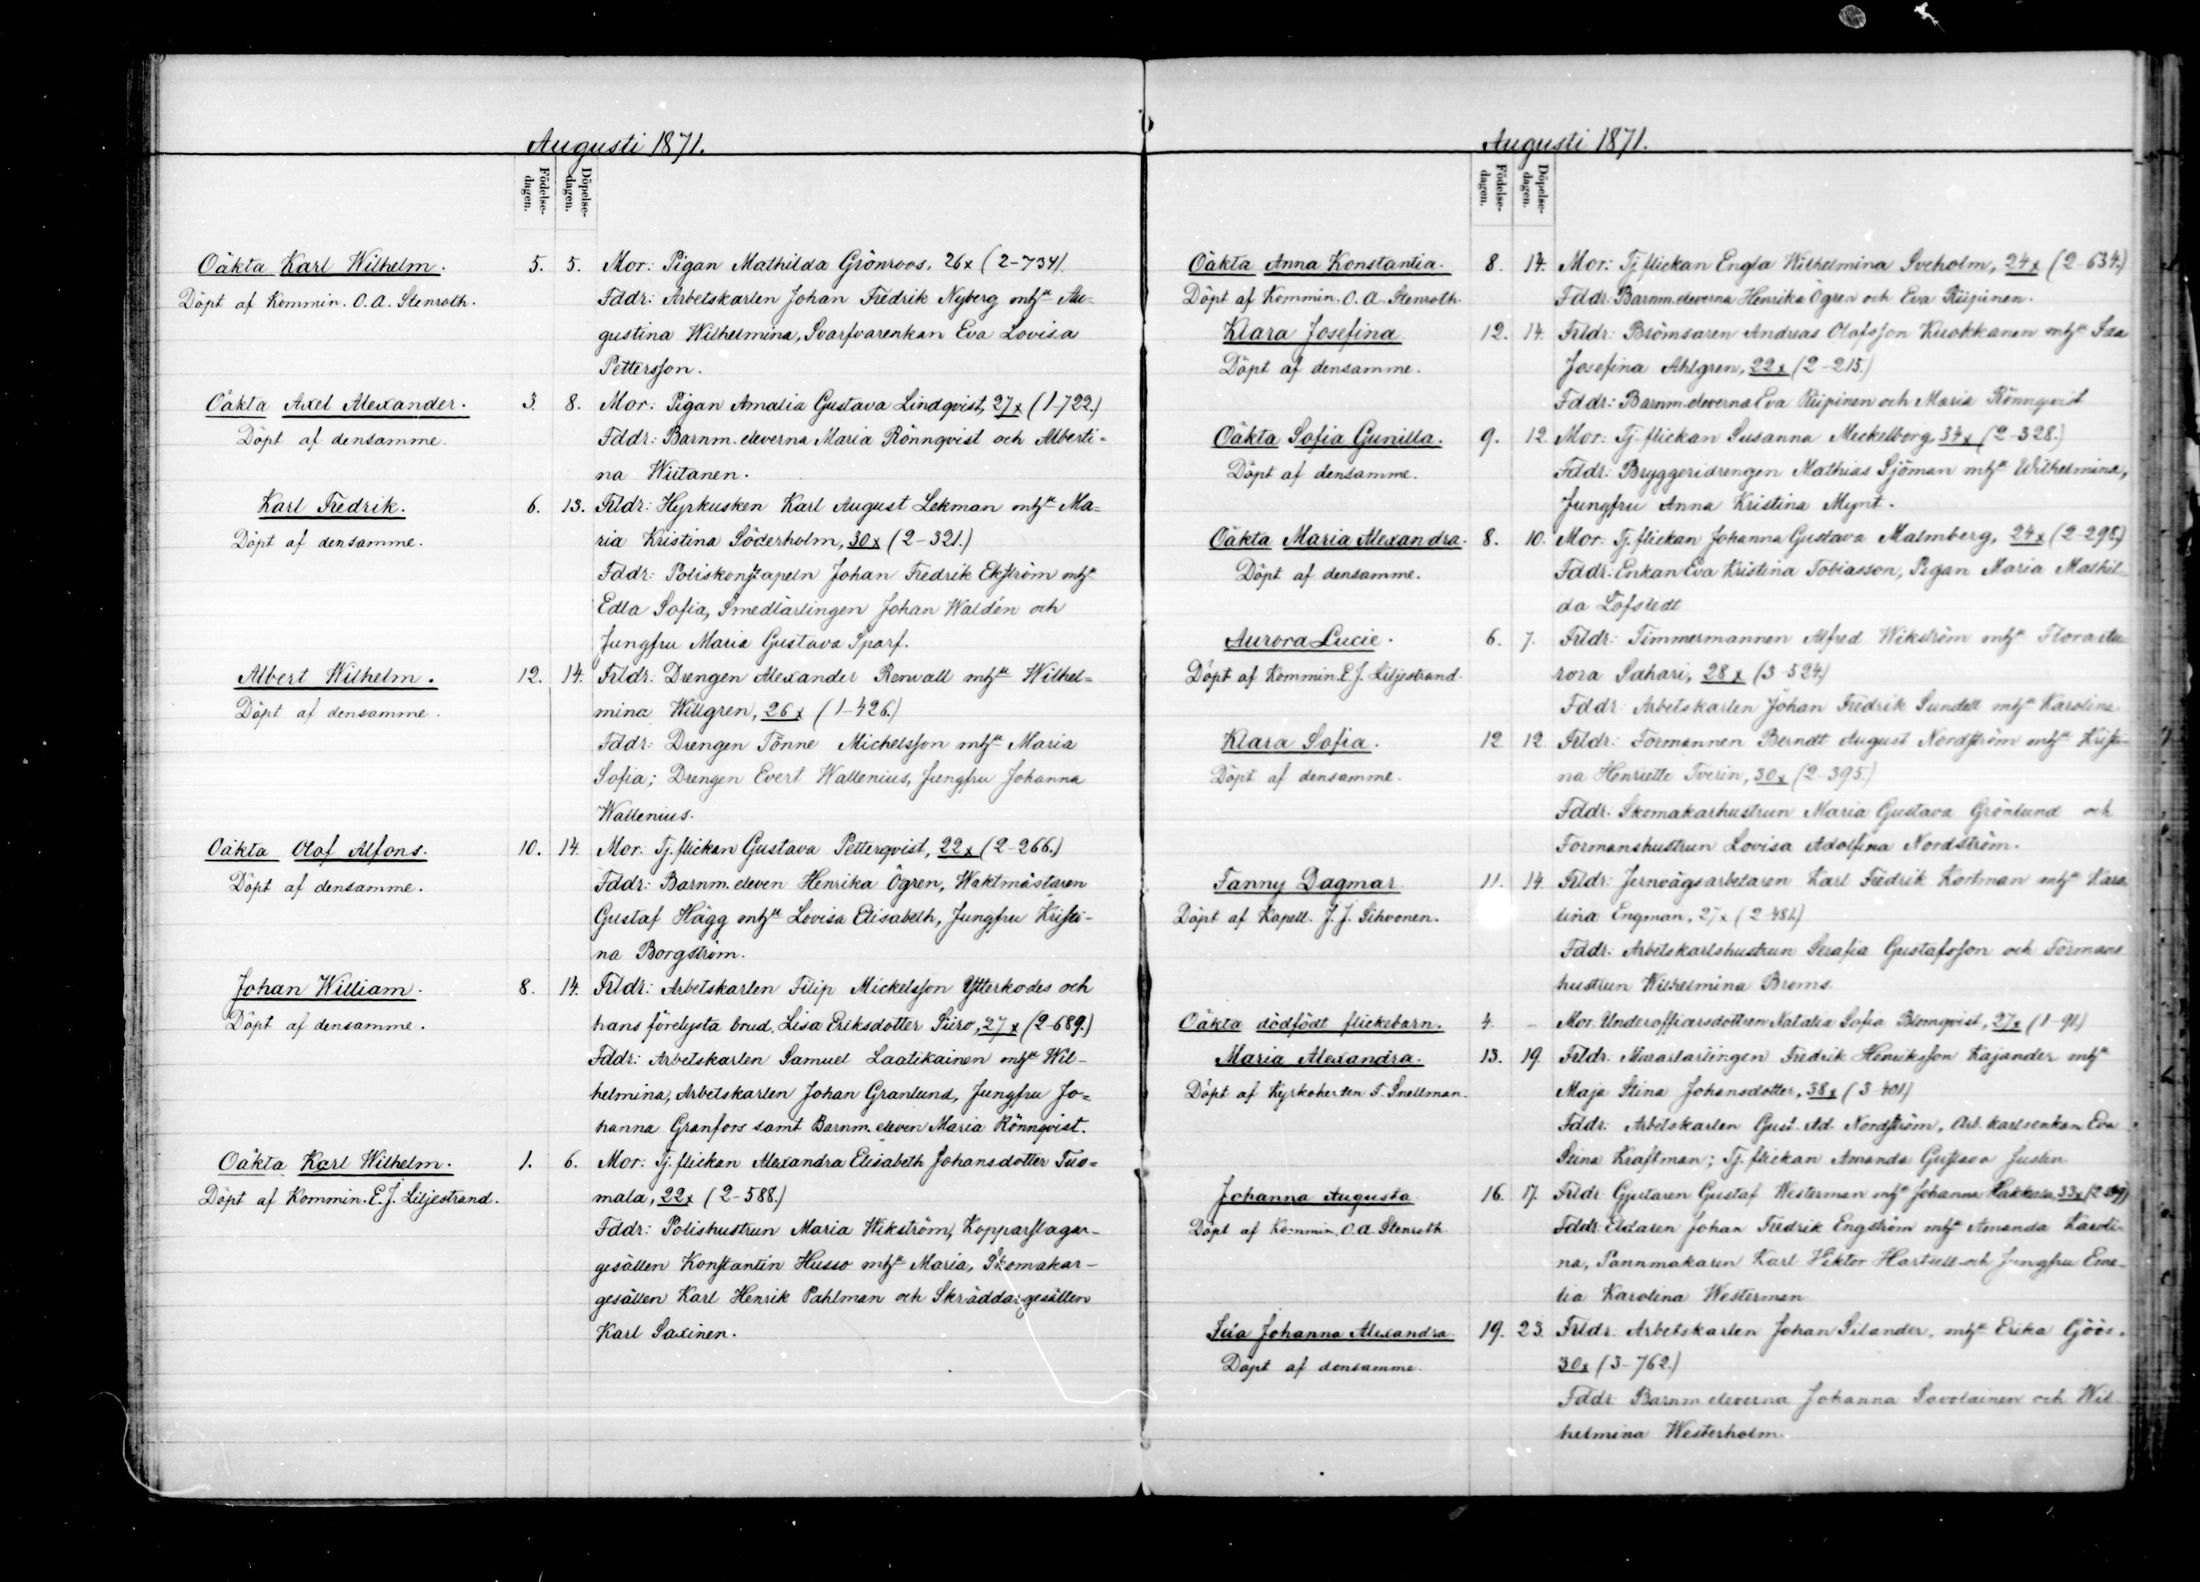 Augusti 1871.
Födelse-
dagen.
Döpelse-
dagen.
Oäkta Karl Wilhelm. 5. 5. Mor: Pigan Mathilda Grönroos, 26x (2-734).
Döpt af Kommin. O. A. Stenroth. Fddr: Arbetskarlen Johan Fredrik Nyberg mhu Au-
gustina Wilhelmina, Svarfvarenkan Eva Lovisa
Pettersson.
Oäkta Axel Alexander. 3. 8. Mor: Pigan Amalia Gustava Lindqvist, 27x (1-722.)
Döpt af densamme. Fddr: Barnm. eleverna Maria Rönnqvist och Alberti-
na Wiitanen.
Karl Fredrik. 6. 13. Frldr: Hyrkusken Karl August Lekman mhu Ma-
Döpt af densamme. ria Kristina Söderholm, 30x (2-321.)
Fddr: Poliskonstapeln Johan Fredrik Ekström mhu
Edla Sofia, Smedlärlingen Johan Waldén och
Jungfru Maria Gustava Sparf.
Albert Wilhelm. 12. 14. Frldr: Drengen Alexander Renvall mhu Wilhel-
Döpt af densamme. mina Willgren, 26x (1-426.)
Fddr: Drengen Tönne Michelsson mhu Maria
Sofia; Drengen Evert Wallenius, Jungfru Johanna
Wallenius.
Oäkta Olof Alfons. 10. 14. Mor: Tj. flickan Gustava Petterqvist, 22x (2-266.)
Döpt af densamme. Fddr: Barnm. eleven Henrika Ögren, Waktmästaren
Gustaf Hägg mhu Lovisa Elisabeth, Jungfru Kristi-
na Borgström.
Johan William. 8. 14. Frldr: Arbetskarlen Filip Mickelsson Ytterkodes och
Döpt af densamme. hans förelysta brud, Lisa Eriksdotter Piiro, 27x (2-689.)
Fddr: Arbetskarlen Samuel Laatikainen mhu Wil-
helmina, Arbetskarlen Johan Granlund, Jungfru Jo-
hanna Granfors samt Barnm. eleven Maria Rönnqvist.
Oäkta Karl Wilhelm. 1. 6. Mor: Tj. flickan Alexandra Elisabeth Johansdotter Tuo-
Döpt af Kommin. E. J. Liljestrand. mala, 22x (2-588.)
Fddr: Polishustrun Maria Wikström, Kopparslagar-
gesällen Konstantin Husso mhu Maria, Skomakar-
gesällen Karl Henrik Pahlman och Skräddargesällen
Karl Saxinen.
Augusti 1871.
Födelse-
dagen.
Döpelse-
dagen.
Oäkta Anna Konstantia. 8. 14. Mor: Tj. flickan Engla Wilhelmina Sveholm, 24x (2-634.)
Döpt af Kommin. O. A. Stenroth. Fddr: Barnm. eleverna Henrika Ögren och Eva Piipinen.
Klara Josefina 12. 14. Frldr: Bromsaren Andreas Olofsson Kuokkanen mhu Ida
Döpt af densamme. Josefina Ahlgren, 22x (2-215.)
Fddr: Barnm. eleverna Eva Piipinen och Maria Rönnqvist
Oäkta Sofia Gunilla. 9. 12. Mor: Tj. flickan Susanna Meckelborg, 34x (2-328.)
Döpt af densamme. Fddr: Bryggeridrengen Mathias Sjöman mhu Wilhelmina,
Jungfru Anna Kristina Mynt.
Oäkta Maria Alexandra. 8. 10. Mor: Tj. flickan Johanna Gustava Malmberg, 24x (2-298.)
Döpt af densamme. Fddr: Enkan Eva Kristina Tobiasson, Pigan Maria Mathil-
da Löfstedt
Aurora Lucie. 6. 7. Frldr: Timmermannen Alfred Wikström mhu Flora Au-
Döpt af Kommin. E. J. Liljestrand. rora Sahari, 28x (3-524.)
Fddr: Arbetskarlen Johan Fredrik Sundell mhu Karolina.
Klara Sofia. 12. 12. Frldr: Formannen Berndt August Nordström mhu Kristi-
Döpt af densamme. na Henriette Tverin, 30x (2-395.)
Fddr: Skomakarhustrun Maria Gustava Grönlund och
Formanshustrun Lovisa Adolfina Nordström.
Fanny Dagmar. 11. 14. Frldr: Jernvägsarbetaren Karl Fredrik Kortman mhu Karo-
Döpt af Kapell. J. J. Sihvonen. lina Engman, 27x (2-481.)
Fddr: Arbetskarlshustrun Serafia Gustafsson och Formans
hustrun Wilhelmina Broms.
Oäkta dödfödt flickebarn. 4. - Mor: Underofficersdottren Natalia Sofia Blomqvist, 27x (1-91.)
Maria Alexandra. 13. 19. Frldr: Murarlärlingen Fredrik Henriksson Kajander mhu
Döpt af Kyrkoherden T. Snellman. Maja Stina Johansdotter, 38x (3-401)
Fddr: Arbetskarlen Gust. Ad. Nordström, Arb. karlsenkan Eva
Stina Kraftman; Tj. flickan Amanda Gustava Juslen
Johanna Augusta 16. 17. Frldr: Gjutaren Gustaf Westerman mhu Johanna Hakkala, 33x
Döpt af Kommin. O. A. Stenroth. Fddr: Eldaren Johan Fredrik Engström mhu Amanda Karoli-
na, Pannmakaren Karl Viktor Hartsell och Jungfru Eme-
lia Karolina Westerman
Johanna Alexandra 19. 23. Frldr: Arbetskarlen Johan Silander, mhu Erika Göös,
Döpt af densamme. 30x (3-762.)
Fddr: Barnm. eleverna Johanna Savolainen och Wil-
helmina Westerholm.